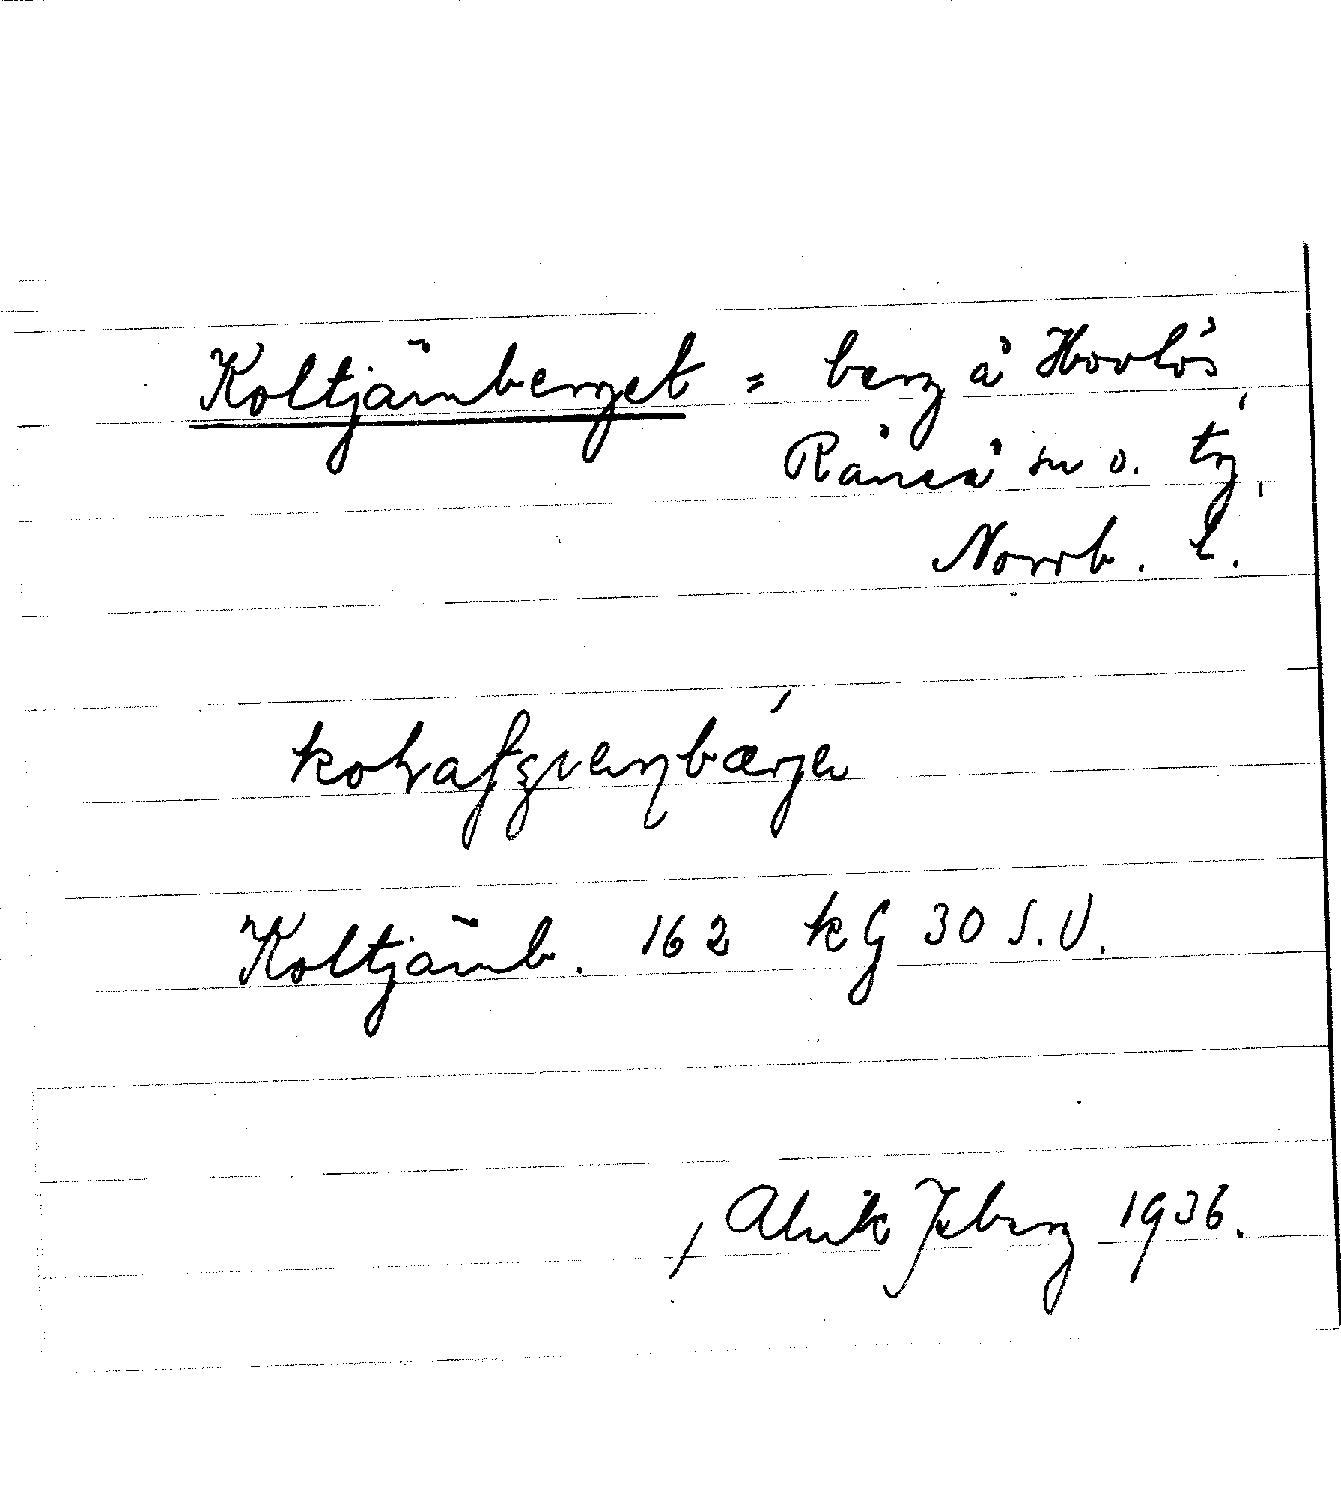 Koltjärnberget = berg å Hovlös,
Råneå sn o. tg,
Norrb. l.
Koltjärnb. 162 kG 30 S.V.
1936.